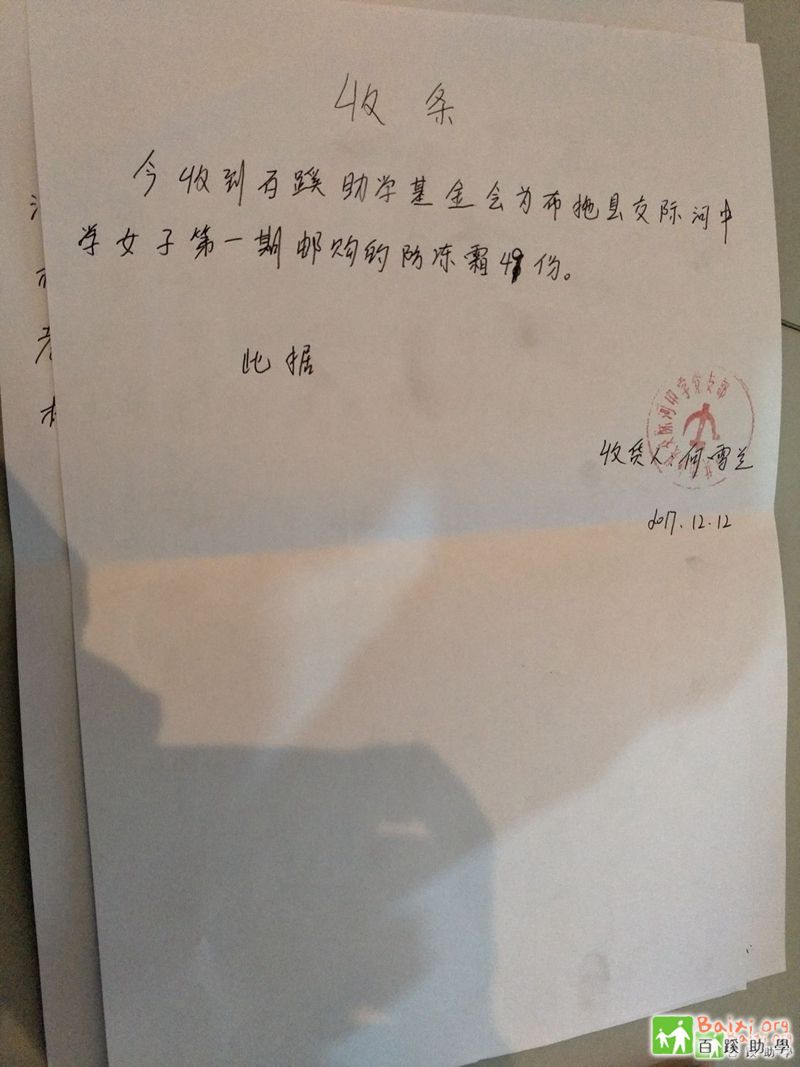 收条
今收到百蹊助学基金会为布拖县交际河中
学女子第一期邮购的防冻霜49份。
此据
交际河中学党支部
收货人:何雪兰
2017.12.12
Baixi.org
百蹊助學